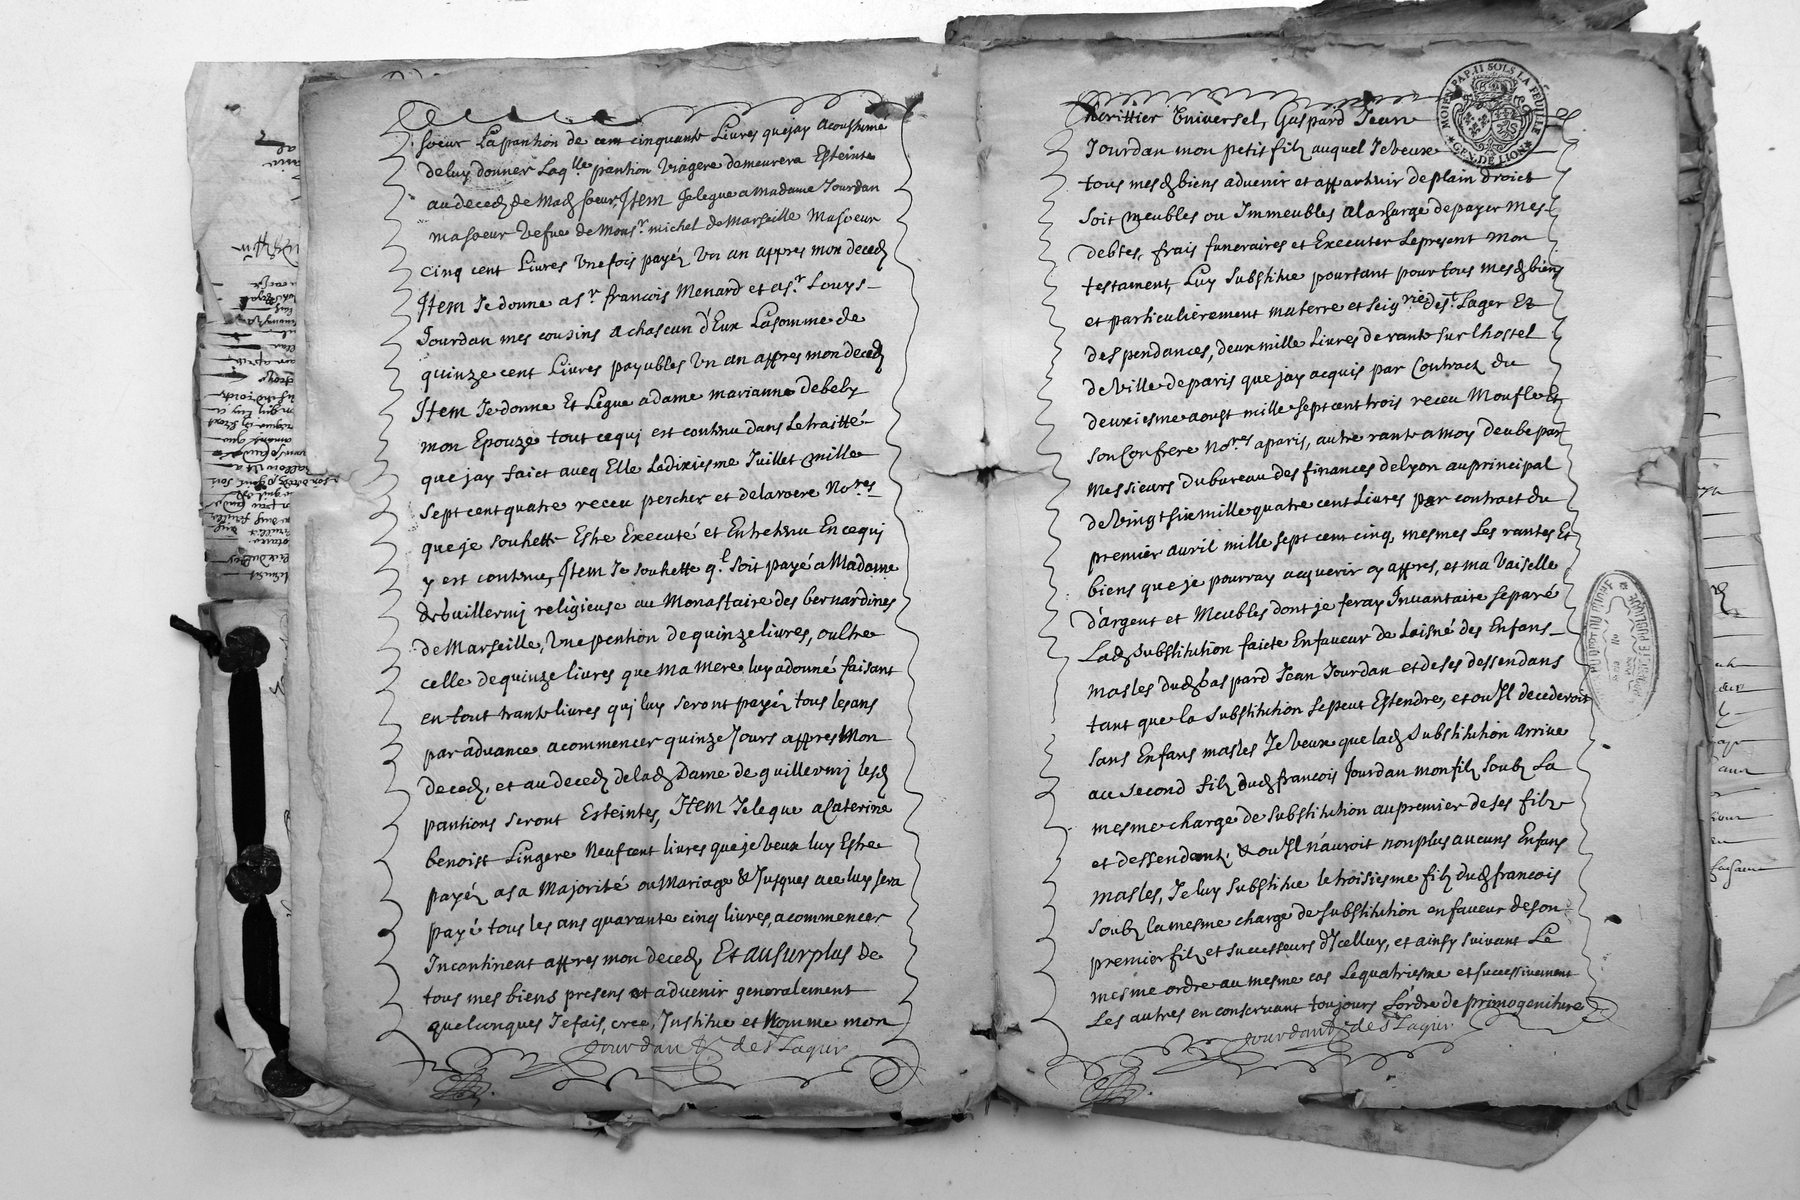 soeur La pantion de cent cinquante Livres que jay acoustumé
de luy donner Laq.lle pantion Viagere demeurera Esteinte
au deced de Mad soeur Item Je legue a Madame Jourdan
ma soeur Vefue de Mons.r michel de Marseille Ma soeur
cinq cent Livres Une fois payéz Un an appres mon deced
Item Je donne a s.r francois Menard et a s.r Louys
Jourdan mes cousins a chascun d'Eux La somme de
quinze cent Livres payables Un an appres mon deced
Item Je donne Et Legue a dame marianne debeby
mon Epouze tout ce qui est contenu dans Le traitté
que jay faict aueq Elle Le dixiesme Juillet mille
sept cent quatre receu percher et delaroere No.res
que je souhette Estre Executé et Entretenu En ce qui
y est contenu, Item Je souhette q.l soit payé a Madame
de Guillermj religieuse au Monastaire des bernardines
de Marseille, Une pention de quinze livres, oultre
celle de quinze livres que Ma Mere luy a donné faisant
en tout trante livres qui luy seront payéz tous les ans
par aduance a commencer quinze Jours appres Mon
deced, et au deced de lad Dame de guillermj lesd
pantions seront Esteintes, Item Je legue a Caterine
benoist Lingere Neuf cent livres que je Veux luy Estre
payéz a sa Majorité ou Mariage & Jusques a ce luy sera
payé tous les ans quarante cinq livres, a commencer
Incontinent appres mon deced, Et au surplus de
tous mes biens presens et aduenir generalement
quelconques Je fais, crée, Institue et Nomme mon
Jourdan de S.t Lager
herittier Universel, Gaspard Jean
Jourdan mon petit filz auquel Je Veux
tous mesd biens aduenir et appartenir de plain droict
soit Meubles ou Immeubles a la charge de payer Mes
debtes, frais funeraires et Executer Le present Mon
testament, Luy substitue pourtant pour tous mesd biens
et particulièrement ma terre et seig.rie de S.t Lager Et
despendances, deux mille Livres de rante sur lhostel
de Ville de paris que jay acquis par Contract du
deuxiesme aoust mille sept cent trois receu Moufle Et
son Confrere No.res a paris, autre rante a moy deube par
Messieurs du bureau des finances de lyon au principal
de Vingt six mille quatre cent Livres par contract du
premier auril mille sept cent cinq, mesmes Les rantes Et
biens que je pourray acquerir cy appres, et ma Vaiselle
d'argent et Meubles dont je feray Inuantaire separé
Lad substitution faicte En faueur de Laisné des Enfans
masles dud Gaspard Jean Jourdan et de ses dessendans
tant que la substitution se peut Estendre, et ou Il decederoit
sans Enfans masles Je Veux que lad substitution arriue
au second filz dud francois Jourdan mon filz soubz La
mesme charge de substitution au premier de ses filz
et dessendant, & ou Il n'auroit non plus aucuns Enfans
masles, Je luy substitue le troisiesme filz dud francois
soubz la mesme charge de substitution en faueur de son
premier filz et successeurs d'Icelluy, et ainsy suivant Le
mesme ordre au mesme cas Le quatriesme et successivement
Les autres en conseruant toujours L'ordre de primogeniture
Jourdan de S.t Lager
MOIEN PAP. II SOLS LA FEUILLE
GEN. DE LION